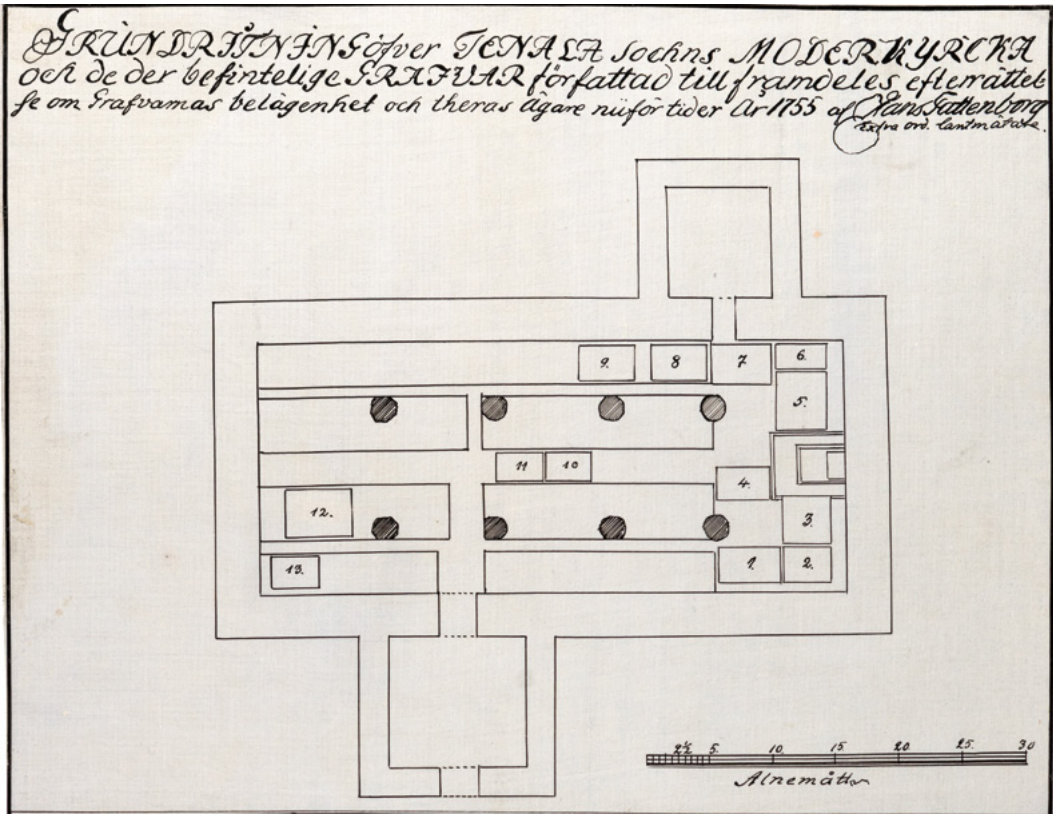 GRUNDRITNING öfver TENALA Sochns MODERKYRCKA
och de der befintelige GRAFVAR författad till framdeles efterrättel-
se om Grafvarnas belägenhet och theras ägare nu för tider År 1755 af Hans Gattenborg
Extra ord. lantmätare.
9. 8 7 6.
5.
11 10
4.
12. 3.
13. 1. 2.
2½ 5. 10. 15. 20. 25. 30
Alnemått